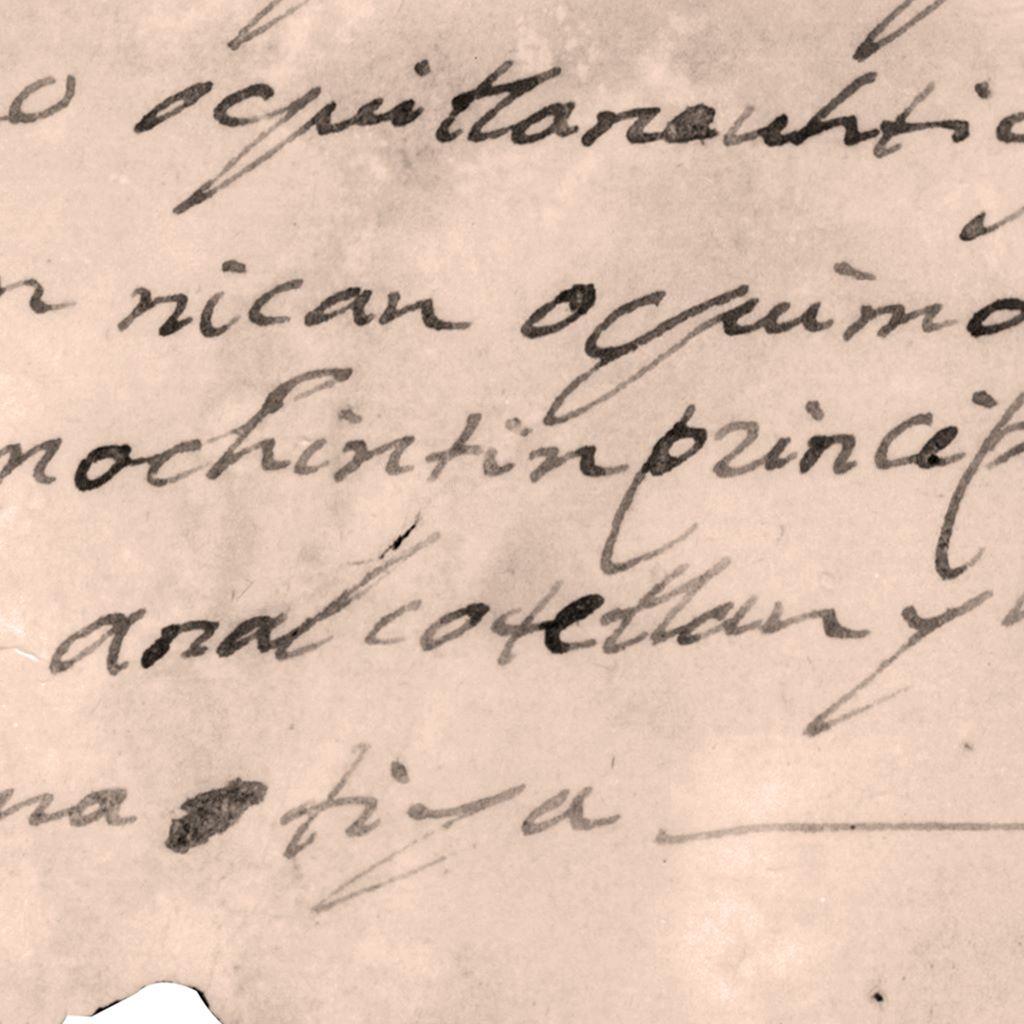 o oquitlaneuhtic
n nican oquimo
mochintin princip
anal cotetlan y
na tiya